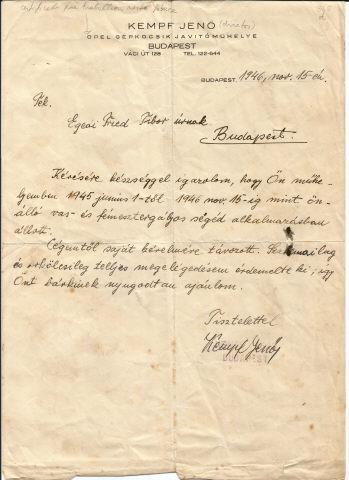 KEMPF JENŐ
OPEL GÉPKOCSIK JAVITÓMŰHELYE
BUDAPEST
VÁCI ÚT 128 TEL. 122-644
BUDAPEST, 1946, nov. 15-én.
Egeai Fried Tibor úrnak
Budapest.
Kérésére készséggel igazolom, hogy Ön műhe-
lyemben 1945 junius 1-től 1946 nov. 15-ig mint ön-
álló vas- és fémesztergályos segéd alkalmazásban
állott.
Cégemtől saját kérelmére távozott. Szakmailag
és erkölcsileg teljes megelégedésem érdemelte ki, úgy
Önt bárkinek nyugodtan ajánlom.
Tisztelettel
Kempf Jenő
BUDAPEST